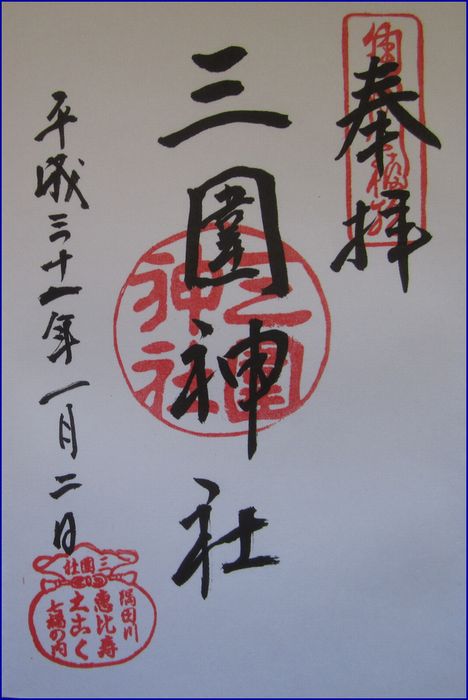 奉拝
三圍神社
三圍神社
平成三十一年一月二日
三圍社
隅田川
惠比寿
大こく
七福の内